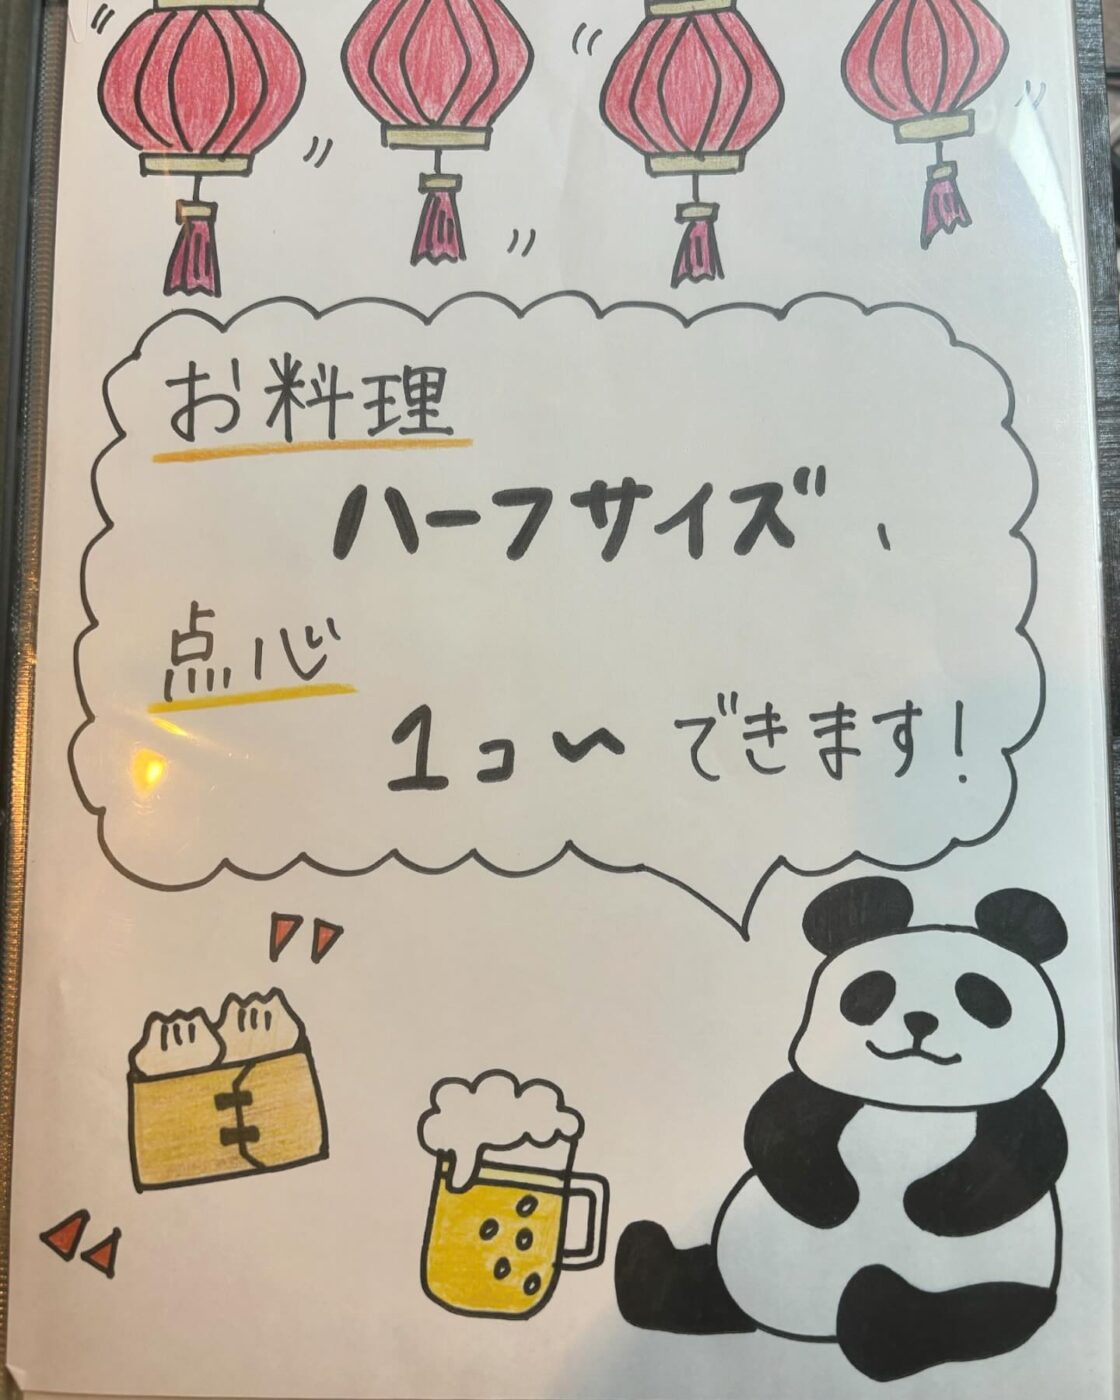 お料理
ハーフサイズ、
点心
1コ〜できます!